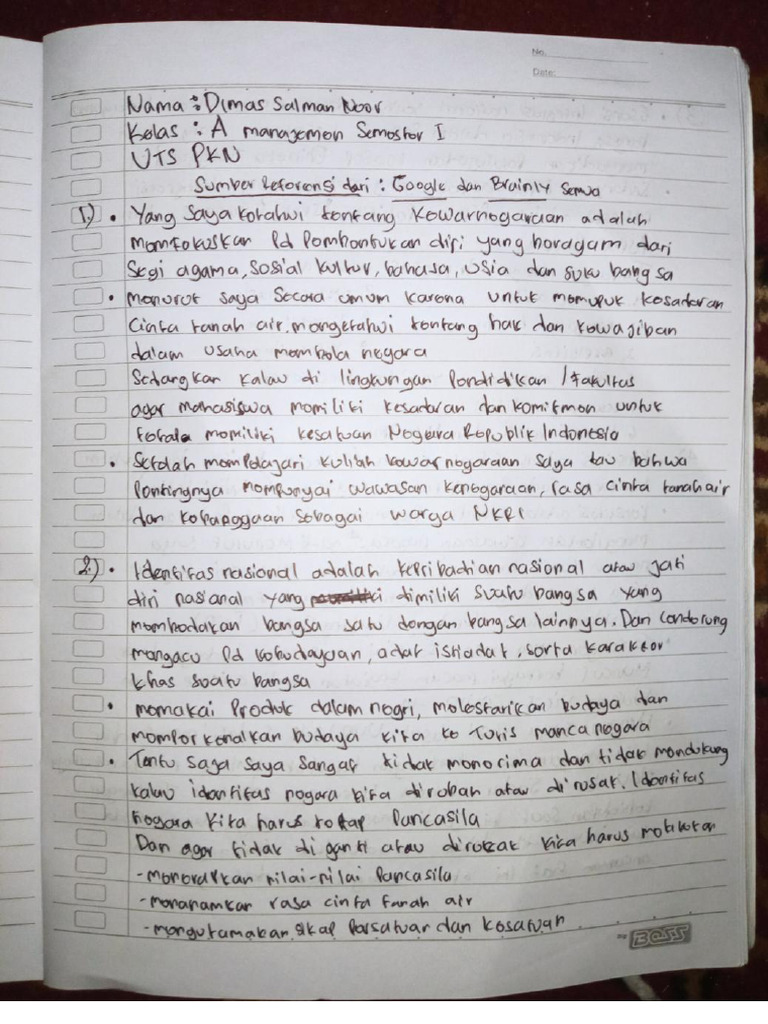 No.
Date:
Nama : Dimas Salman Noor
Kelas : A manajemen Semester I
UTS PKN
Sumber Referensi dari : Google dan Brainly Semua
1.) • Yang Saya ketahui tentang Kewarnegaraan adalah
memfokuskan Pd Pembentukan diri yang beragam dari
Segi agama, sosial kultur, bahasa, usia dan suku bangsa
• menurut saya Secara umum karena untuk memupuk kesadaran
Cinta tanah air. mengetahui tentang hak dan kewajiban
dalam usaha membela negara
Sedangkan kalau di lingkungan Pendidikan / fakultas
agar mahasiswa memiliki kesadaran dan komitmen untuk
memiliki kesatuan Negara Republik Indonesia
• Setelah mempelajari kuliah kewarnegaraan saya tau bahwa
Pentingnya mempunyai wawasan kenegaraan, rasa cinta tanah air
dan sebagai warga NKRI
2.) • Identitas nasional adalah kepribadian nasional atau jati
diri nasional yang dimiliki suatu bangsa yang
membedakan bangsa satu dengan bangsa lainnya. Dan cenderung
mengacu Pd kebudayaan, adat istiadat, serta karakter
khas suatu bangsa
• memakai Produk dalam negri, melestarikan budaya dan
memperkenalkan budaya kita ke Turis manca negara
• Tentu saja saya sangat tidak menerima dan tidak mendukung
kalau identitas negara kita dirobah atau dirusak. Identitas
negara kita harus tetap Pancasila
Dan agar tidak di ganti atau dirusak kita harus melakukan
- menerapkan nilai-nilai Pancasila
- menanamkan rasa cinta tanah air
- mengutamakan sikap Persatuan dan kesatuan
by BOSS